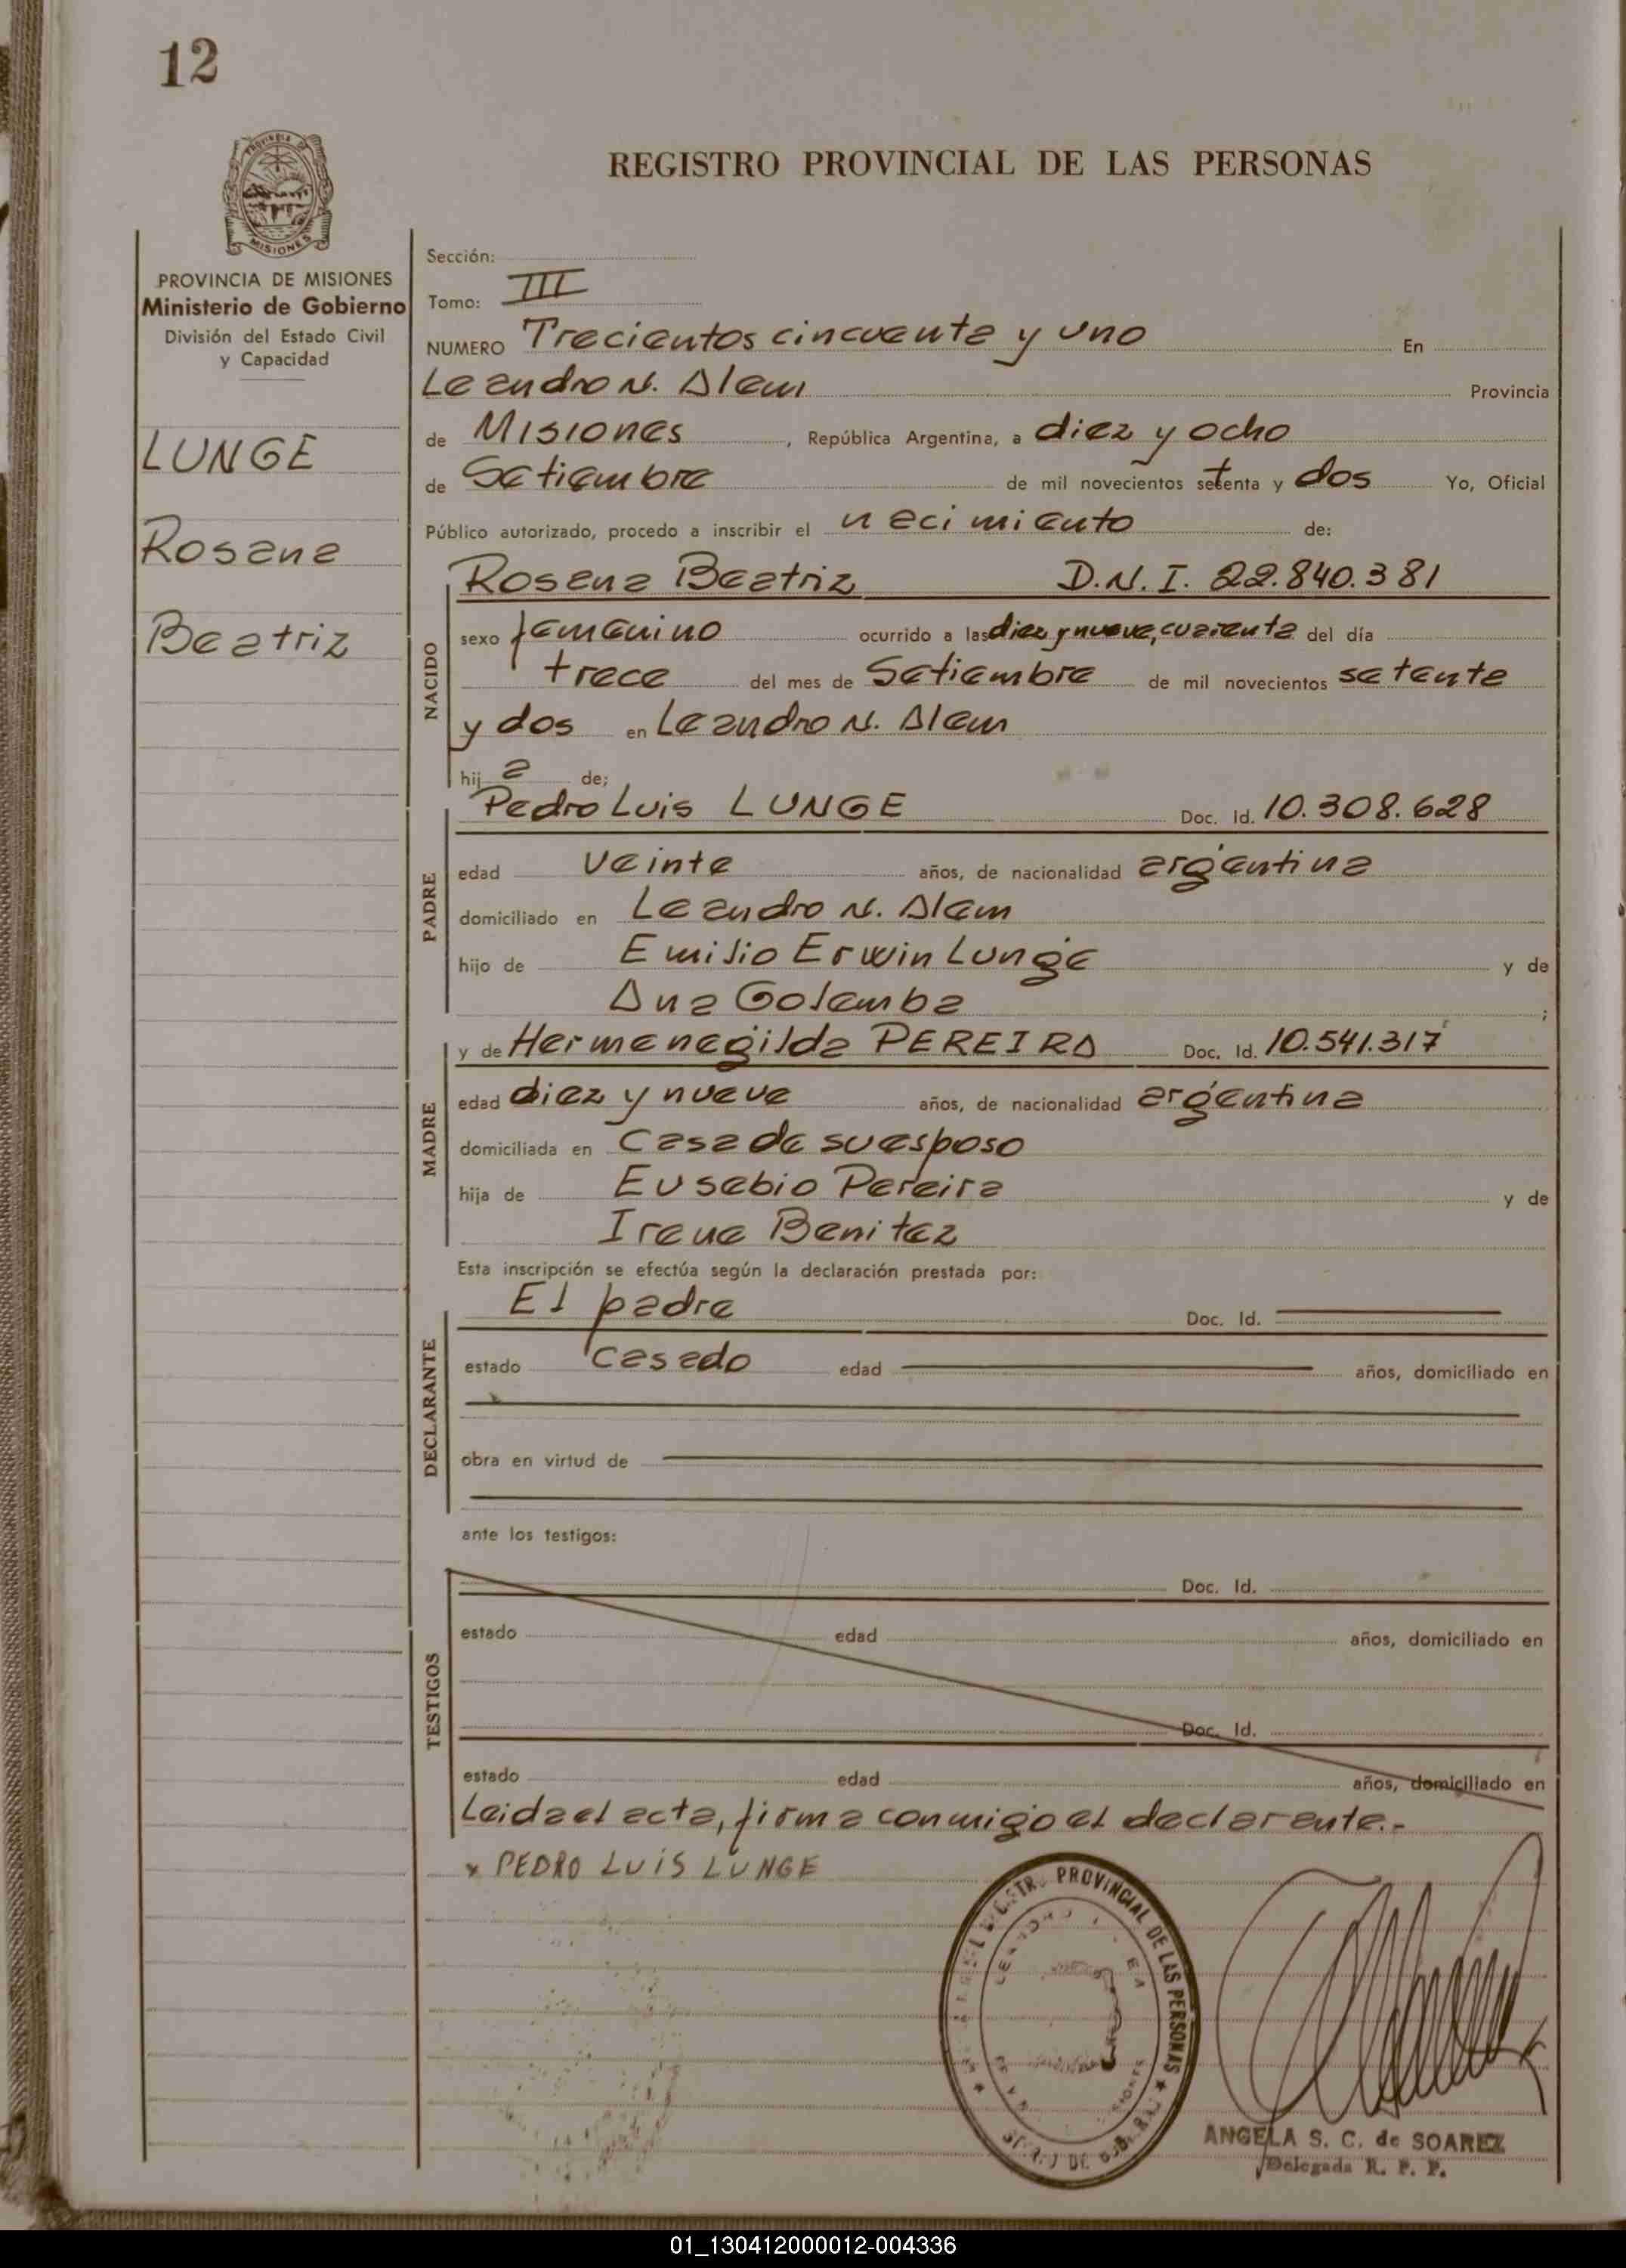 12
REGISTRO PROVINCIAL DE LAS PERSONAS
PROVINCIA DE MISIONES
Ministerio de Gobierno
División del Estado Civil
y Capacidad
LUNGE
Rosana
Beatriz
Sección:
Tomo: III
NUMERO Trecientos cincuenta y uno En
Leandro N. Alem Provincia
de Misiones, República Argentina, a diez y ocho
de Setiembre de mil novecientos setenta y dos Yo, Oficial
Público autorizado, procedo a inscribir el nacimiento de:
NACIDO
Rosana Beatriz D.N.I. 22.840.381
sexo femenino ocurrido a las diez y nueve, cuarenta del día
trece del mes de Setiembre de mil novecientos setenta
y dos en Leandro N. Alem
hij a de;
PADRE
Pedro Luis LUNGE Doc. Id. 10.308.628
edad veinte años, de nacionalidad argentina
domiciliado en Leandro N. Alem
hijo de Emilio Erwin Lunge y de
Ana Golamba ;
MADRE
y de Hermenegilda PEREIRA Doc. Id. 10.541.317
edad diez y nueve años, de nacionalidad argentina
domiciliada en Casa de su esposo
hija de Eusebio Pereira y de
Irene Benitez
Esta inscripción se efectúa según la declaración prestada por:
DECLARANTE
El padre Doc. Id.
estado casado edad años, domiciliado en
obra en virtud de
ante los testigos:
TESTIGOS
Doc. Id.
estado edad años, domiciliado en
Doc. Id.
estado edad años, domiciliado en
Leida el acta, firma conmigo el declarante.-
x PEDRO LUIS LUNGE
PROVINCIAL DE LAS PERSONAS
ANGELA S. C. de SOAREZ
Delegada R. P. P.
01_130412000012-004336